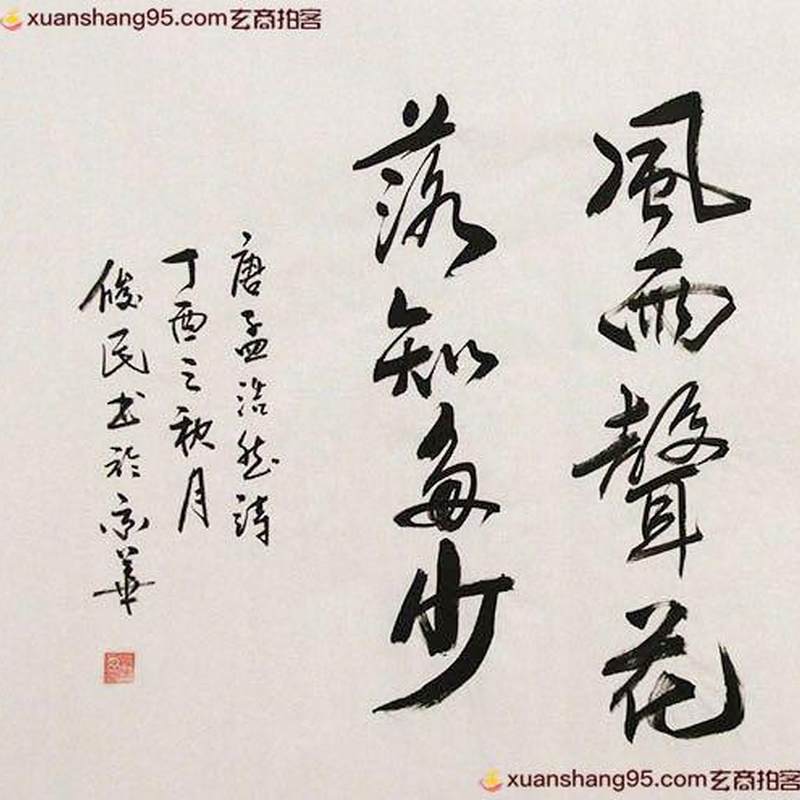 xuanshang95.com玄商拍客
風雨聲花
落知多少
唐孟浩然詩
丁酉之秋月
俊民书於京華
xuanshang95.com玄商拍客